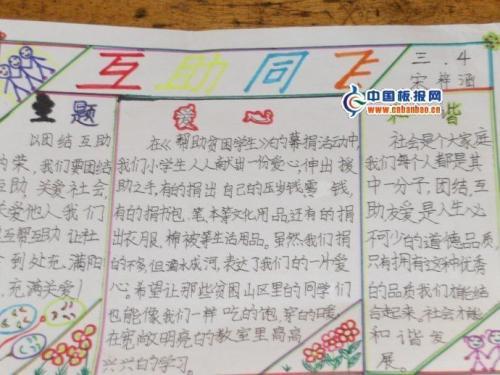 互助同飞
三.4
宋梓涵
中国板报网
www.cnbanbao.cn
主题
以团结互助
为荣,我们要团结
互助 关爱社会,
关爱他人我们
互帮互助 让社
会到处充满阳
充满关爱!
爱心
在《帮助贫困学生》的募捐活动中,
我们小学生人人献出一份爱心,伸出援
助之手,有的捐出自己的压岁钱零钱,
有的捐书包,笔,本等文化用品还有的捐
出衣服,棉被等生活用品。虽然我们捐
的不多,但滴水成河,表达了我们的一片爱
心。希望让那些贫困山区里的同学们
也能像我们一样吃的饱,穿的暖,
在宽敞明亮的教室里高高
兴兴的学习。
和谐
社会是个大家庭
我们每个人都是其
中一分子,团结,互
助友爱是人生必
不可少的道德品质
只有拥有这种优秀
的品质我们才能结
合起来,社会才能
和谐发
展。